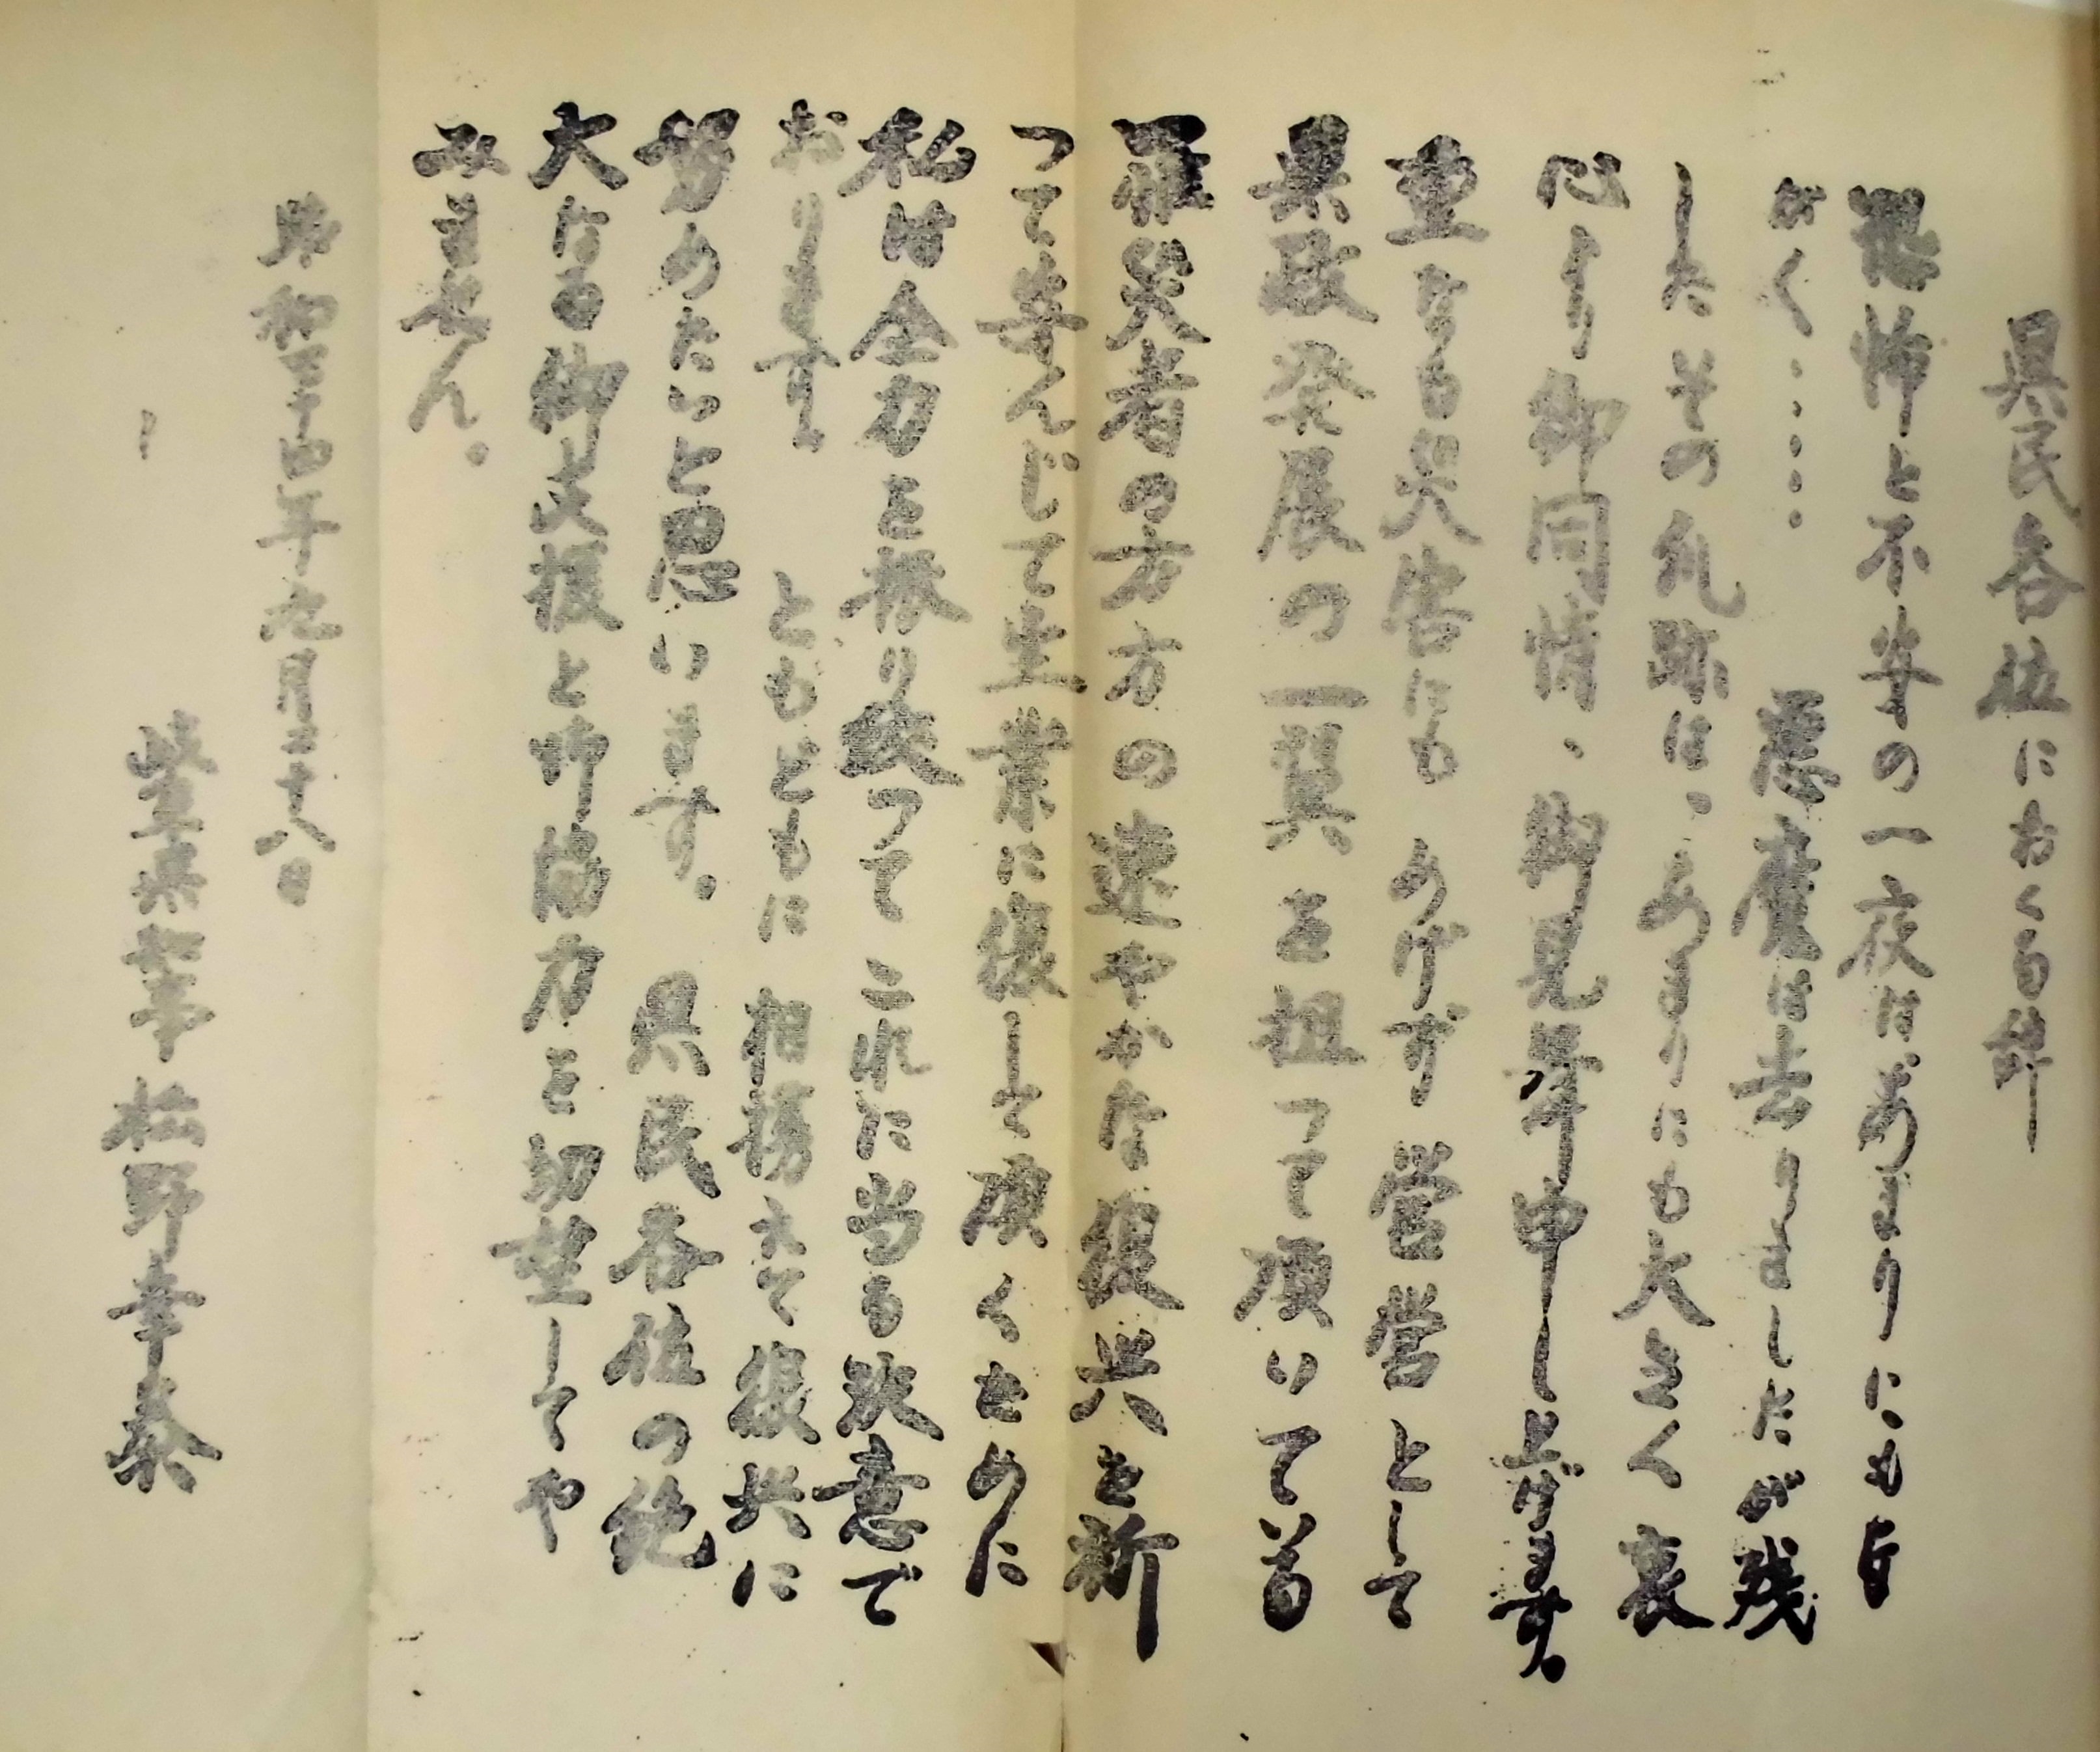 県民各位におくる辞
恐怖と不安の一夜は、あまりにも長
がく・・・・・　悪魔は去りましたが残
したその爪跡は、あまりにも大きく衷
心より御同情、御見舞申し上げます。
重なる災害にも　めげず　営営として
県政発展の一翼を担って頂いてる
罹災者の方方の速やかな復興を祈
って安んじて生業に復して頂くためた
私は全力を振り絞ってこれに当る決意で
おります。　ともどもに　相携えて復興に
努めたいと思います。　県民各位の絶
大なる御支援と御協力を切望してや
みません。
昭和三十四年九月二十八日
岐阜県知事　松野幸泰